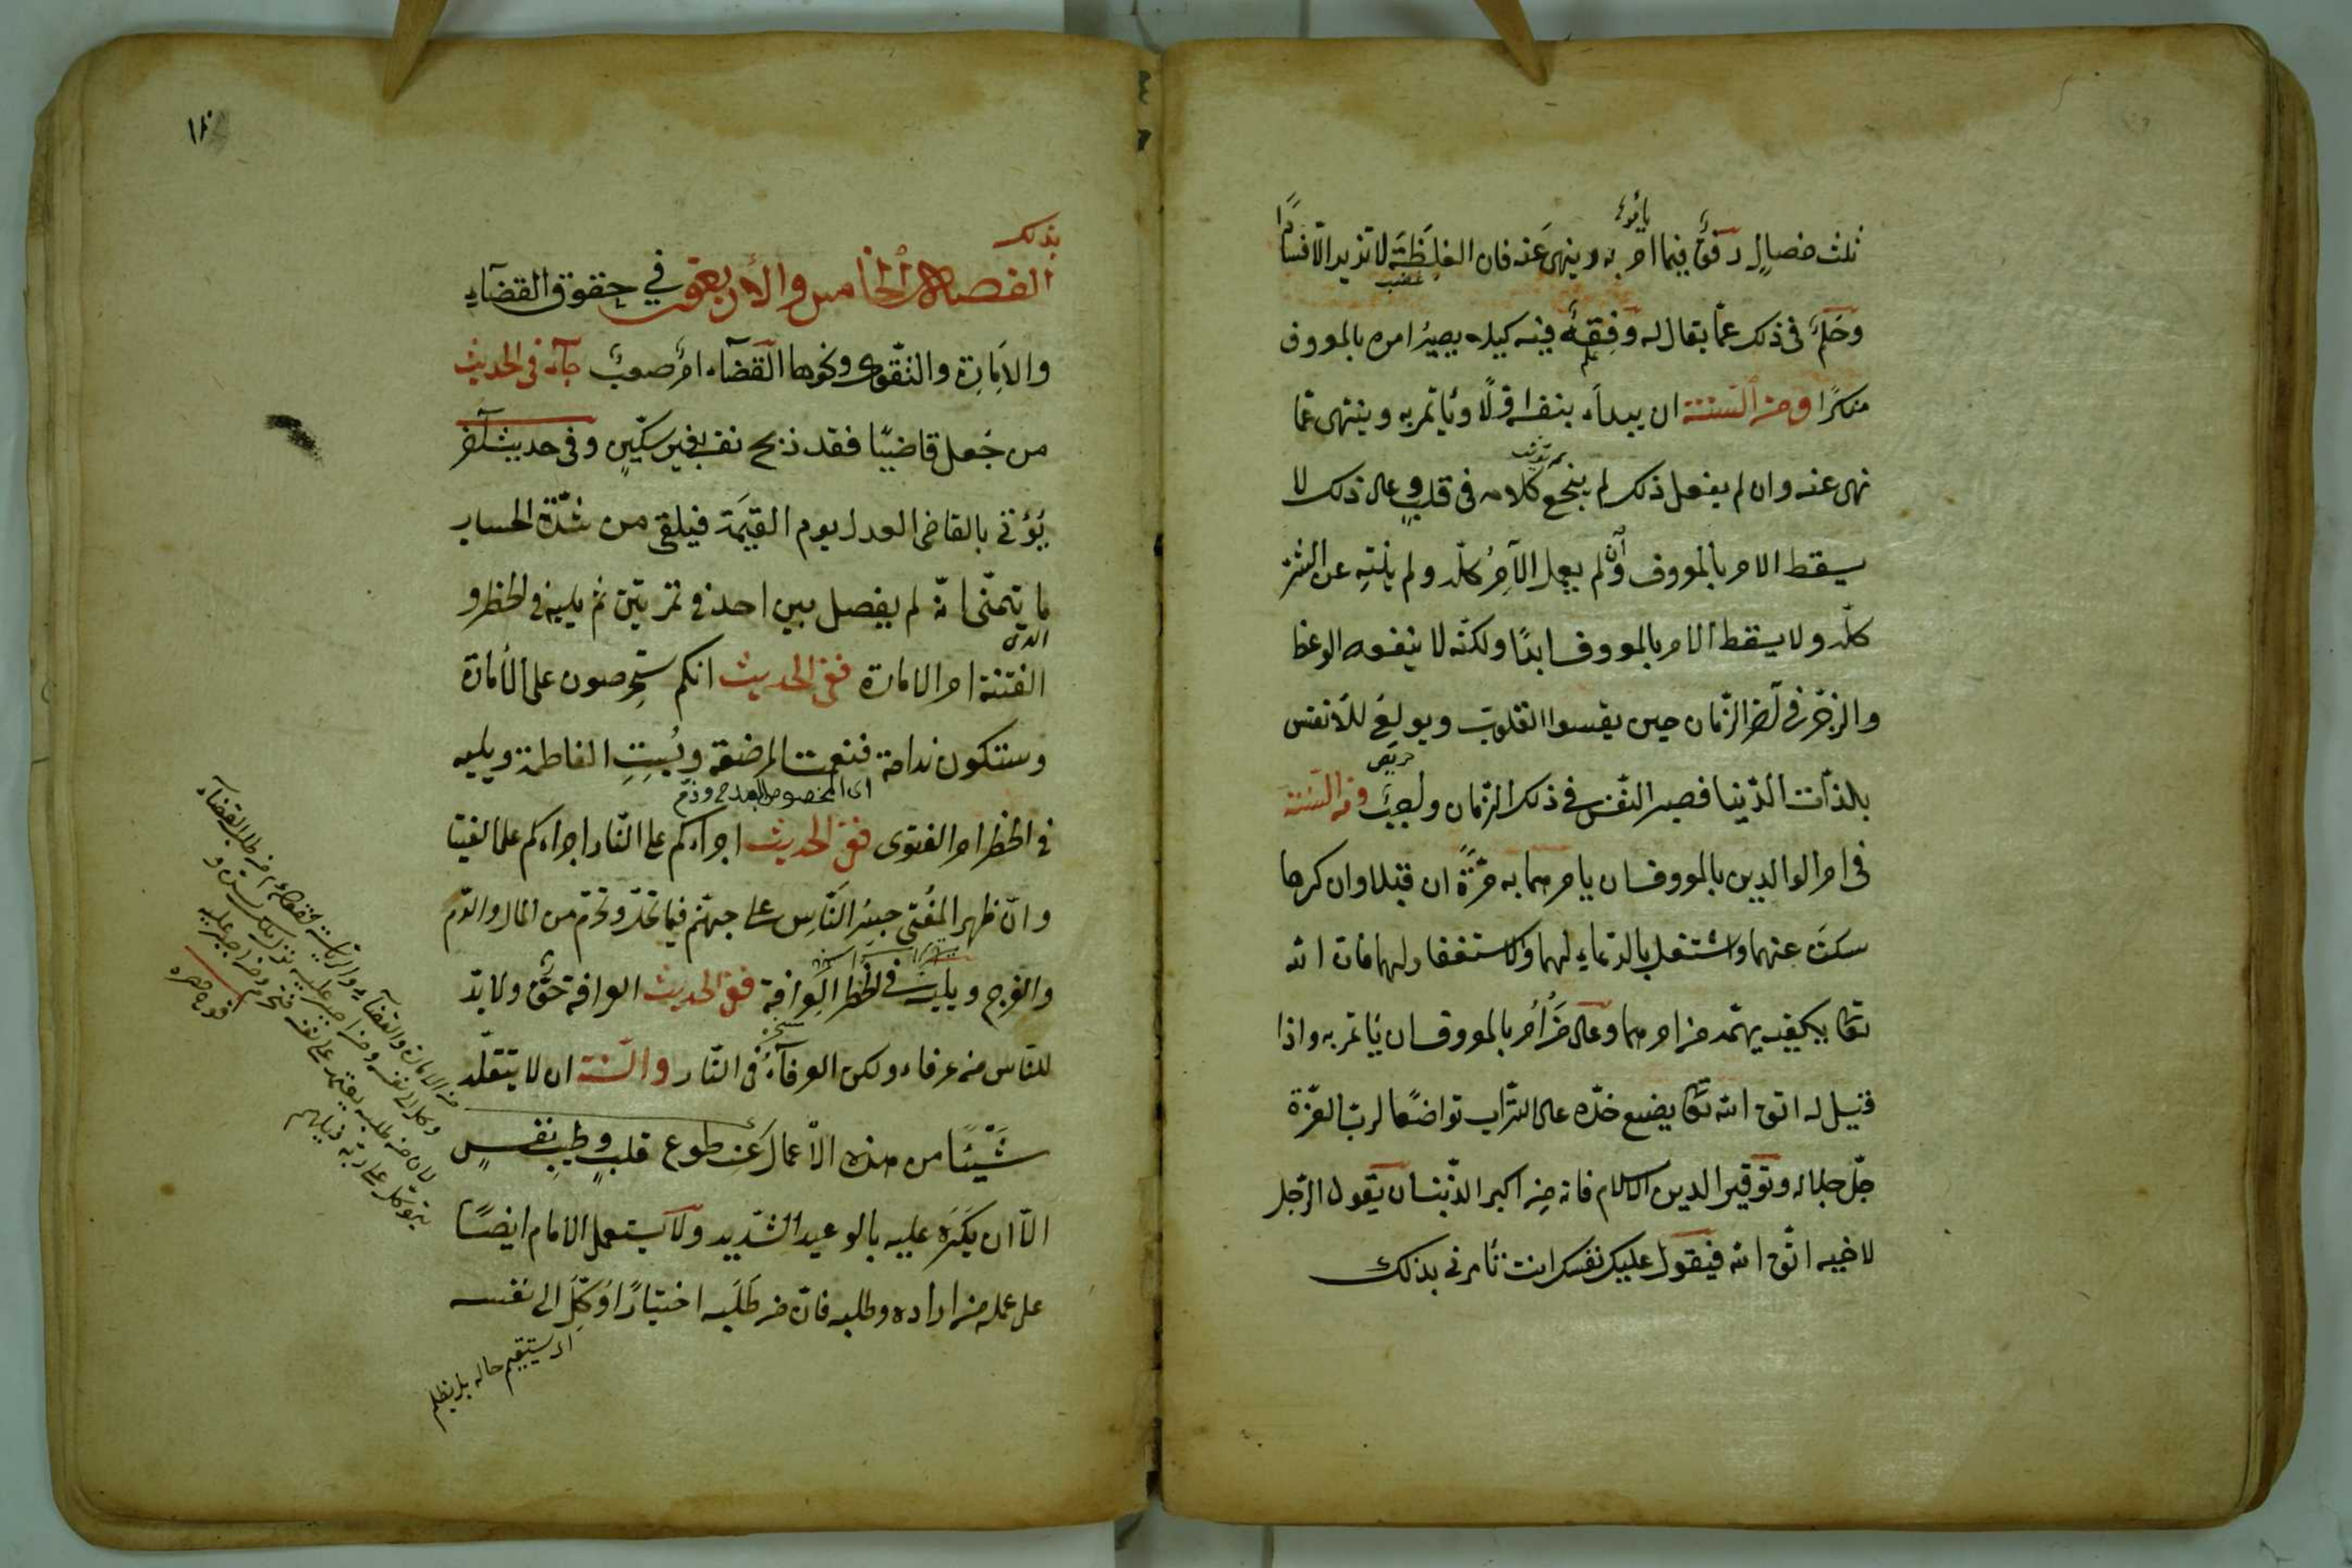 ثلث خصالٍ رفقٌ فيما امر به وينهى عنه فان الغلظة لا تزيد الّا فسادًا
وحلمٌ فى ذلك عمّا يقال له وفقهٌ فيه كيلا يصير امره بالمعروف
منكرًا ومن السّنّة ان يبدأ بنفسه اوّلًا ويأتمر به وينتهى عمّا
نهى عنه وان لم يفعل ذلك لم ينجع كلامه فى قلبٍ وعلى ذلك لا
يسقط الامر بالمعروف وان لم يعمل الآمر كلّه ولم ينته عن الشرّ
كلّه ولا يسقط الامر بالمعروف ابدًا ولكنّه لا ينفعه الوعظ
والزجر فى آخر الزّمان حين يقسوا القلوب ويولع للأنفس
حريص
بلذّات الدّنيا فصبر النّفس فى ذلك الزّمان ومن السّنّة
فى امر الوالدين بالمعروف ان يامرهما به مرّةً ان قبلا وان كرها
سكت عنهما واشتغل بالدّعاء لهما والاستغفار لهما فان الله
تعا يكفيه يهمّه من امرهما وعلى من أُمر بالمعروف ان يأتمر به واذا
قيل له اتق الله تعا يضع خدّه على التّراب تواضعًا لربّ العزّة
جلّ جلاله وتوقيرا لدين الاسلام فانه من اكبر الذّنب ان يقول الرّجل
لاخيه اتّق الله فيقول عليك نفسك انت تأمرنى بذلك
١٨٠
بذلك
الفصل الخامس والأربعون في حقوق القضآء
والامارة والتّقوى ونحوها القضآء امرٌ صعبٌ جآء فى الحديث
من جُعل قاضيًا فقد ذبح نفسه بغير سكّينٍ وفى حديث آخر
يُؤتى بالقاضى العدل يوم القيٰمة فيلقى من شدّة الحساب
ما يتمنّى انّه لم يفصل بين احد فى تمرتين ثم يليه فى الخطر و
الفتنة امر الامارة ففى الحديث انكم ستحرصون على الأمارة
وستكون ندامة فنعمت المرضعة وبئست الفاطمة ويليه
اى المخصوص بالمدح وذمّ
فى الخطر امر الفتوى ففى الحديث اجراءكم على النّار اجراءكم على الفتيا
وانّ ظهر المفتى جسر النّاس على جهنّم فيما تحلّ وتحرّم من المال والدّم
والفرج ويليه فى الخطر العرافة ففى الحديث العرافة حقٌّ ولا بدّ
للنّاس من عرفاء ولكن العرفآء فى النّار والسّنّة ان لا يتقلّد
شيئًا من هذه الأعمال عن طوع قلبٍ وطيب نفسٍ
الّا ان يكره عليه بالوعيد الشّديد ولا يستعمل الامام ايضًا
على عمله من اراده وطلبه فانّ من طلبه اختيارًا وُكّل الى نفسه
اى يستقيم حاله بل يظلم